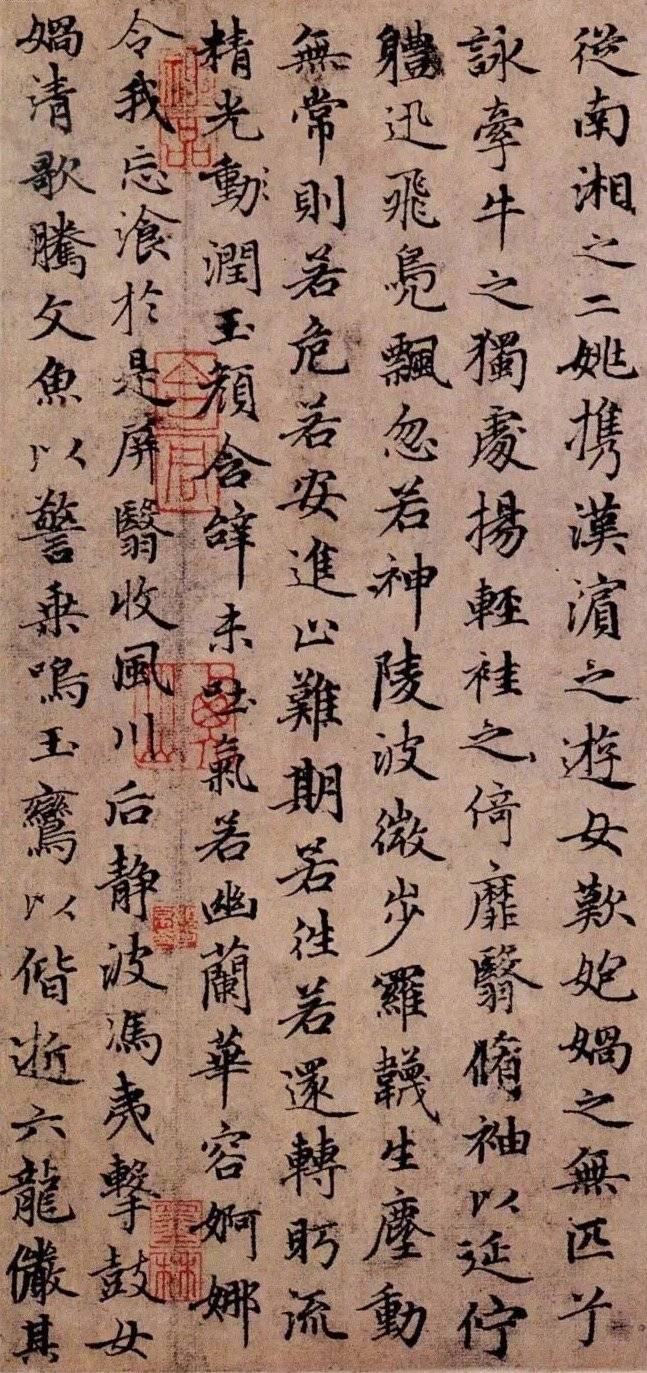 從南湘之二姚携漢濱之遊女歎㚿媧之無匹兮
詠牽牛之獨處揚輕袿之倚靡翳脩袖以延佇
體迅飛鳧飄忽若神陵波微步羅韈生塵動
無常則若危若安進止難期若往若還轉眄流
精光動潤玉顏含辭未吐氣若幽蘭華容婀娜
令我忘飡於是屏翳收風川后静波馮夷擊鼓女
媧清歌騰文魚以警乘鳴玉鸞以偕逝六龍儼其